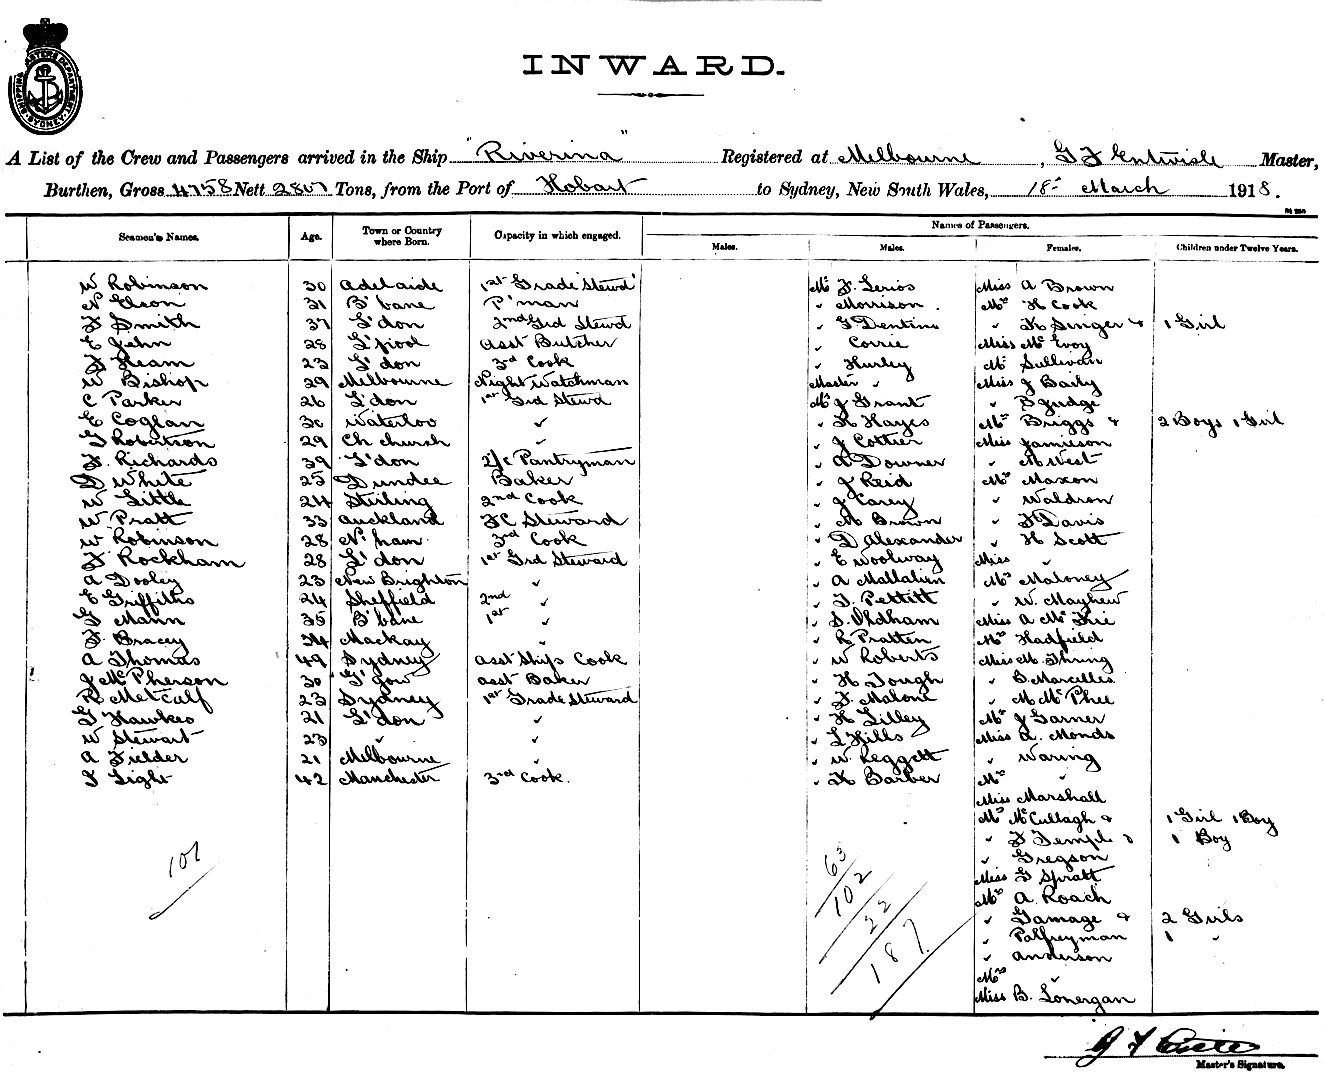 SHIPPING MASTERS DEPARTMENT SYDNEY
INWARD.
A List of the Crew and Passengers arrived in the Ship "Riverina" Registered at Melbourne, G F Entwisle Master,
Burthen, Gross 4758 Nett 2807 Tons, from the Port of Hobart to Sydney, New South Wales, 18th March 1918.
Names of Passengers.
Seamen's Names. Age. Town or Country where Born. Capacity in which engaged. Males. Males. Females. Children under Twelve Years.
W Robinson 30 Adelaide 1st Grade Stewd Mr F. Lerios Miss A Brown
N Elson 31 B'bane P'man " Morrison Mrs H Cook
F Smith 37 L'don 2nd Grd Stewd " G Dentino " K Singer & 1 Girl
E Jehn 28 L'pool Asst Butcher " Corrie Miss McEvoy
F Heam 23 L'don 3rd Cook " Hurley Mrs Sullivan
W Bishop 29 Melbourne Night Watchman Master " Miss J Baily
C Parker 26 L'don 1st Grd Stewd Mr J Grant " B Judge
E Coglan 30 Waterloo " " R Hayes Mrs Briggs & 2 Boys 1 Girl
G Robertson 29 Ch church " " J Cottier Miss Jamieson
F. Richards 39 L'don 2/c Pantryman " A Downer " M West
D White 25 Dundee Baker " J Reid Mrs Maxon
W Little 24 Stirling 2nd Cook " J Carey " Waldron
W Pratt 33 Auckland F C Steward " M Brown " F Davis
W Robinson 28 N'ham 3rd Cook " D Alexander " H Scott
F Rockham 28 L'don 1st Grd Steward " E Woolway Miss "
A Dooley 23 New Brighton " " A Mallalieu Mrs Maloney
E Griffiths 24 Sheffield 2nd " " T. Pettitt " W. Mayhew
G Mann 35 B'bane 1st " " S. Oldham Miss A McKie
F. Bracey 24 Mackay " " R Pratten Mrs Hadfield
A Thomas 49 Sydney Asst Ships Cook " W Roberts Miss M. Thring
J McPherson 30 G'gow Asst Baker " H Gough " B Marcelles
R Metcalf 23 Sydney 1st Grade Steward " F. Malone " M McPhee
G Hawkes 21 L'don " " H Lilley Mrs J Garner
W Stewart 23 " " " L Hills Miss A. Monds
A Fielder 21 Melbourne " " W Reggett " Waring
F Light 42 Manchester 3rd Cook. " K Barber Mrs "
Miss Marshall
Mrs McCullagh & 1 Girl 1 Boy
" F Temple & 1 Boy
" Gregson
Miss G Spratt
Mrs A. Roach
" Gamage & 2 Girls
" Palfreyman 1 "
" Anderson
Mrs "
Miss B. Lonergan
107
63
102
22
187
Master's Signature.